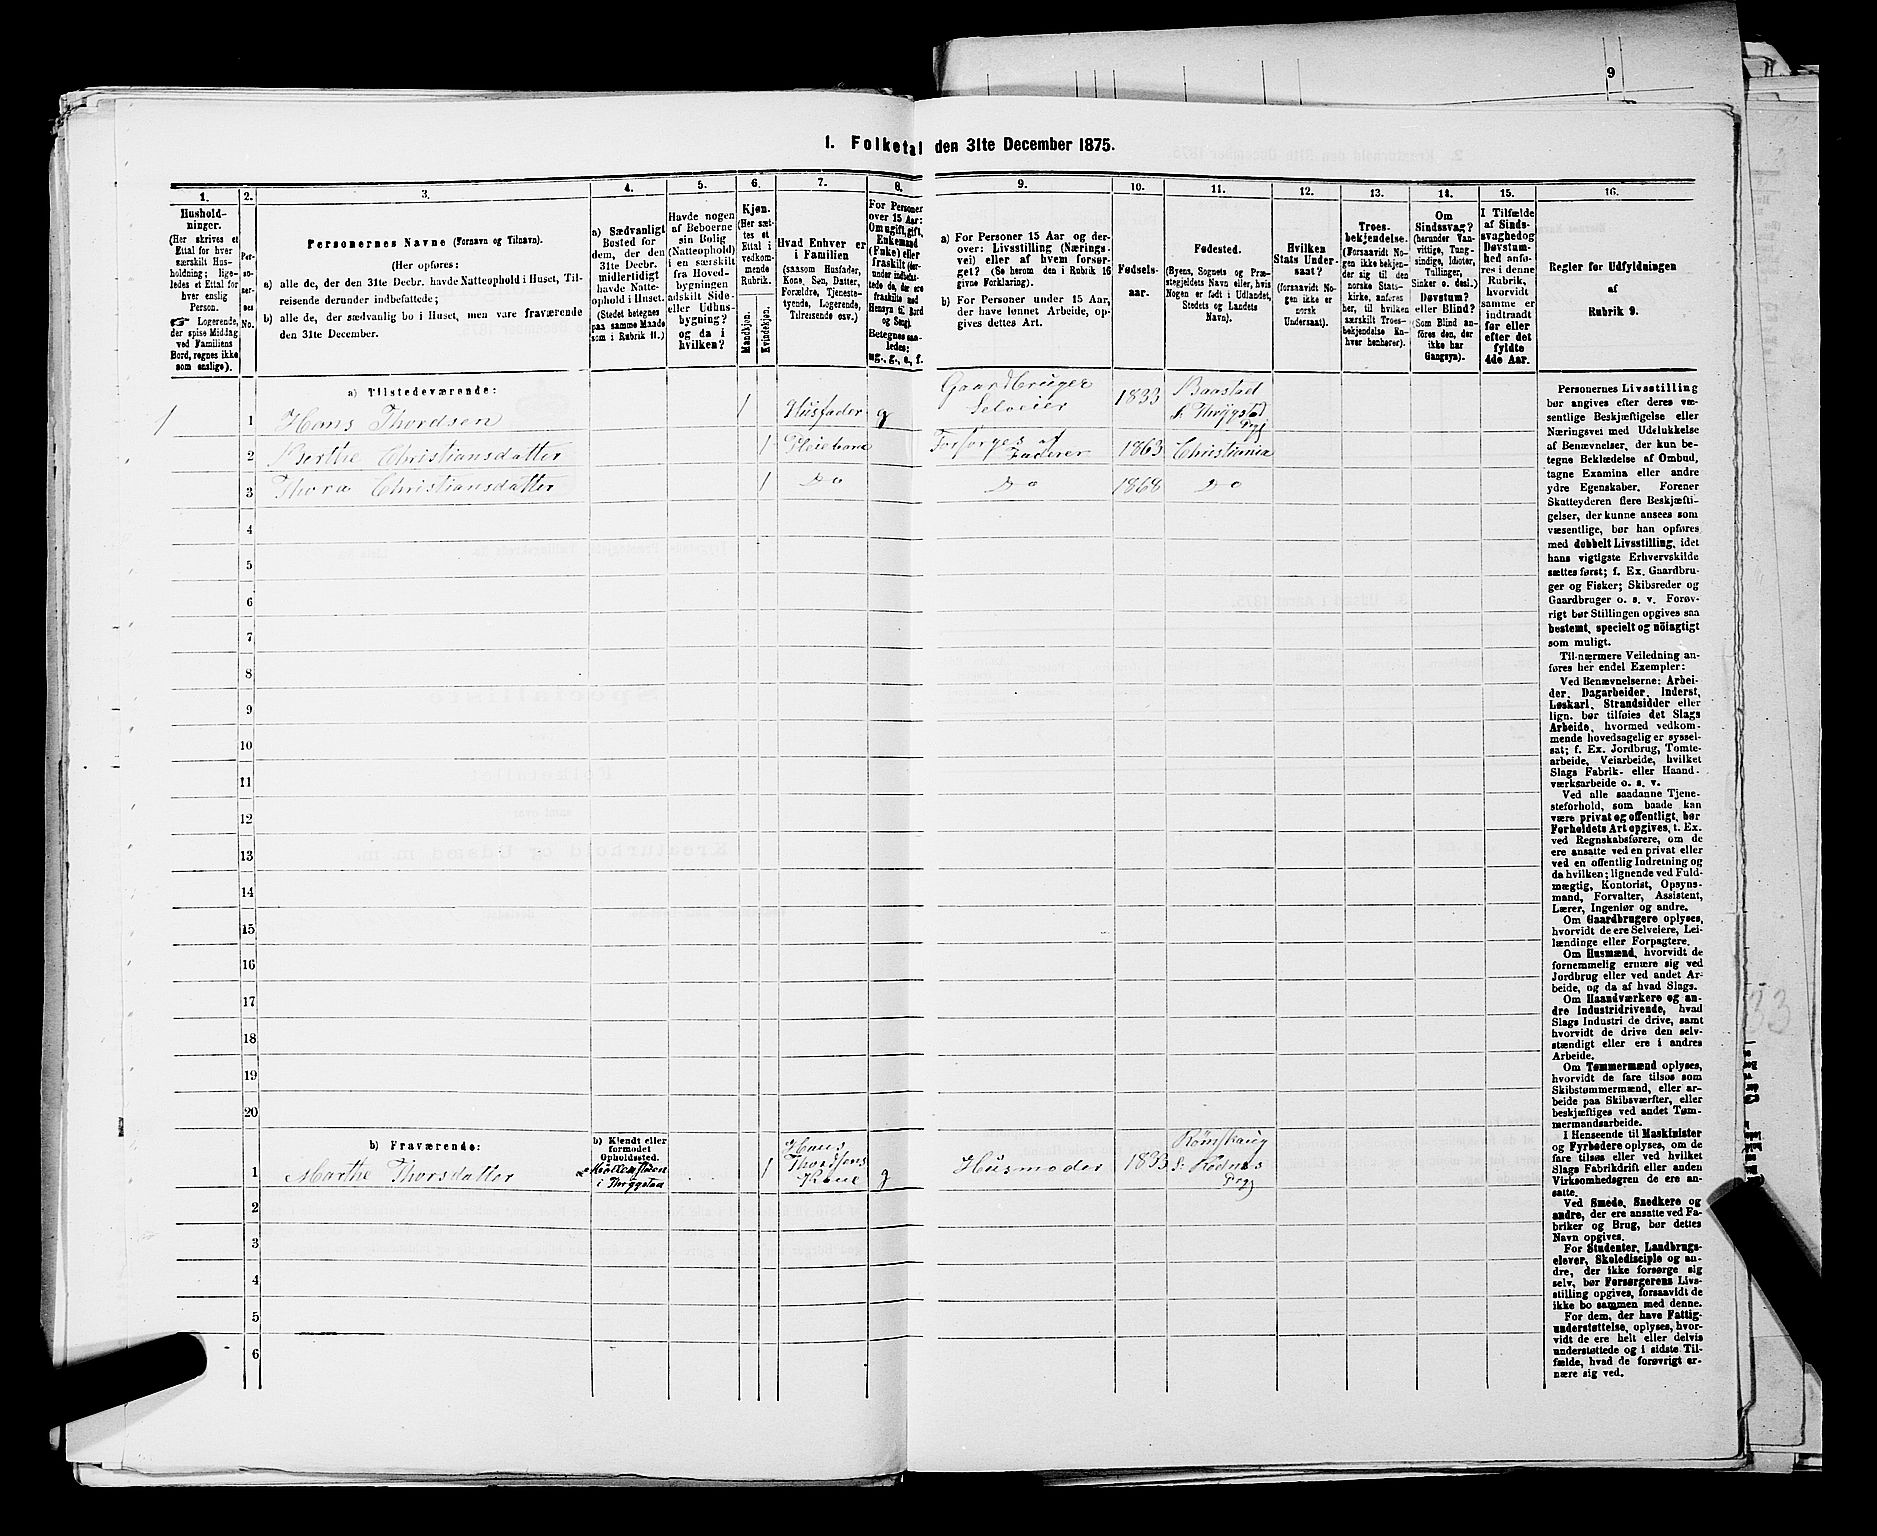 9
1. Folketal den 31te December 1875.
1.
Hushold-
ninger.
(Her skrives et
Ettal for hver
særskilt Hus-
holdning; lige-
ledes et Ettal for
hver enslig
Person.
☞ Logerende,
der spise Middag
ved Familiens
Bord, regnes ikke
som enslige).
2.
Per-
so-
ner-
nes
No.
3.
Personernes Navne (Fornavn og Tilnavn).
(Her opføres:
a) alle de, der den 31te Decbr. havde Natteophold i Huset, Til-
reisende derunder indbefattede;
b) alle de, der sædvanlig bo i Huset, men vare fraværende
den 31te December.
4.
a) Sædvanligt
Bosted for
dem, der den
31te Decbr.
midlertidigt
havde Natte-
ophold i Huset.
(Stedet betegnes
paa samme Maade
som i Rubrik 11.)
5.
Havde nogen
af Beboerne
sin Bolig
(Natteophold)
i en særskilt
fra Hoved-
bygningen
adskilt Side-
eller Udhus-
bygning? og da i
hvilken?
6.
Kjøn.
(Her sæt-
tes et
Ettal i
vedkom-
mende
Rubrik.)
Mandkjøn.
Kvindekjøn.
7.
Hvad Enhver er
i Familien
(saasom Husfader,
Kone, Søn, Datter,
Forældre, Tjeneste-
tyende, Logerende,
Tilreisende osv.)
8.
For Personer
over 15 Aar:
Om ugift, gift,
Enkemand
(Enke) eller
fraskilt
Betegnes saa-
ledes:
ug., g., e., f.
9.
a) For Personer 15 Aar og der-
over: Livsstilling (Nærings-
vei) eller af hvem forsør-
get? (Se herom den i Rubrik 16
givne Forklaring).
b) For Personer under 15 Aar,
der have lønnet Arbeide, op-
gives dettes Art.
10.
Fødsels-
aar.
11.
Fødested.
(Byens, Sognets og Præ-
stegjeldets Navn eller, hvis
Nogen er født i Udlandet,
Stedets og Landets
Navn).
12.
Hvilken
Stats Under-
saat?
(forsaavidt No-
gen ikke er
norsk
Undersaat).
13.
Troes-
bekjendelse.
(Forsaavidt No-
gen ikke bekjen-
der sig til den
norske Stats-
kirke, anføres
her, til hvilken
særskilt Troes-
bekjendelse En-
hver henhører).
14.
Om
Sindssvag?
(herunder Van-
vittige, Tung-
sindige, Idioter,
Tullinger,
Sinker o. desl.)
Døvstum?
eller Blind?
(Som Blind an-
føres den, der
ikke har
Gangsyn).
15.
I Tilfælde
af Sinds-
svaghed og
Døvstum-
hed anfø-
res i denne
Rubrik,
hvorvidt
samme er
indtraadt
før eller
efter det
fyldte
4de Aar.
16.
Regler for Udfyldningen
af
Rubrik 9.
a) Tilstedeværende:
1 1 Hans Thordsen 1 Husfader g Gaardbruger Selveier 1833 Baastad i Thrygstad Prgj
2 Berthe Christiansdatter 1 Pleiebarn Forsørges af Faderen 1863 Christiania
3 Thora Christiansdatter 1 Do Do 1868 Do
4
5
6
7
8
9
10
11
12
13
14
15
16
17
18
19
20
b) Fraværende:
b) Kjendt eller
formodet
Opholdssted.
1 Marthe Thorsdatter i Thrygstad 1 Hans Thordsens Kone g Husmoder 1833 Rømskoug i Rødnæs Prgj
2
3
4
5
6
Personernes Livsstilling
bør angives efter deres væ-
sentlige Beskjæftigelse eller
Næringsvei med Udelukkelse
af Benævnelser, der kun be-
tegne Beklædelse af Ombud,
tagne Examina eller andre
ydre Egenskaber. Forener
Skatteyderen flere Beskjæfti-
gelser, der kunne ansees som
væsentlige, bør han opføres
med dobbelt Livsstilling, idet
hans vigtigste Erhvervskilde
sættes først; f. Ex. Gaardbru-
ger og Fisker; Skibsreder og
Gaardbruger o. s. v. Forøv-
rigt bør Stillingen opgives saa
bestemt, specielt og nöiagtigt
som muligt.
Til nærmere Veiledning an-
føres her endel Exempler:
Ved Benævnelserne: Arbei-
der, Dagarbeider, Inderst,
Løskarl, Strandsidder eller
lign. bør tilføies det Slags
Arbeide, hvormed vedkom-
mende hovedsagelig er syssel-
sat; f. Ex. Jordbrug, Tomte-
arbeide, Veiarbeide, hvilket
Slags Fabrik- eller Haand-
værksarbeide o. s. v.
Ved alle saadanne Tjene-
steforhold, som baade kan
være privat og offentligt, bør
Forholdets Art opgives, t. Ex.
ved Regnskabsførere, om de
ere ansatte ved en privat eller
ved en offentlig Indretning og
da hvilken; lignende ved Fuld-
mægtig, Kontorist, Opsyns-
mand, Forvalter, Assistent,
Lærer, Ingeniør og andre.
Om Gaardbrugere oplyses,
hvorvidt de ere Selveiere, Lei-
lændinge eller Forpagtere.
Om Husmænd, hvorvidt de
fornemmelig ernære sig ved
Jordbrug eller ved andet Ar-
beide, og da af hvad Slags.
Om Haandværkere og an-
dre Industridrivende, hvad
Slags Industri de drive, samt
hvorvidt de drive den selv-
stændigt eller ere i andres
Arbeide.
Om Tømmermænd oplyses,
hvorvidt de fare tilsøs som
Skibstømmermænd, eller ar-
beide paa Skibsværfter, eller
beskjæftiges ved andet Tøm-
mermandsarbeide.
I Henseende til Maskinister
og Fyrbødere oplyses, om de
fare tilsøs eller ved hvilket
Slags Fabrikdrift eller anden
Virksomhedsgren de ere an-
satte.
Ved Smede, Snedkere og
andre, der ere ansatte ved Fa-
briker og Brug, bør dettes
Navn opgives.
For Studenter, Landbrugs-
elever, Skoledisciple og an-
dre, der ikke forsørge sig
selv, bør Forsørgerens Livs-
stilling opgives, forsaavidt de
ikke bo sammen med denne.
For dem, der have Fattig-
understøttelse, oplyses, hvor-
vidt de ere helt eller delvis
understøttede og i sidste Til-
fælde, hvad de forøvrigt er-
nære sig ved.
33